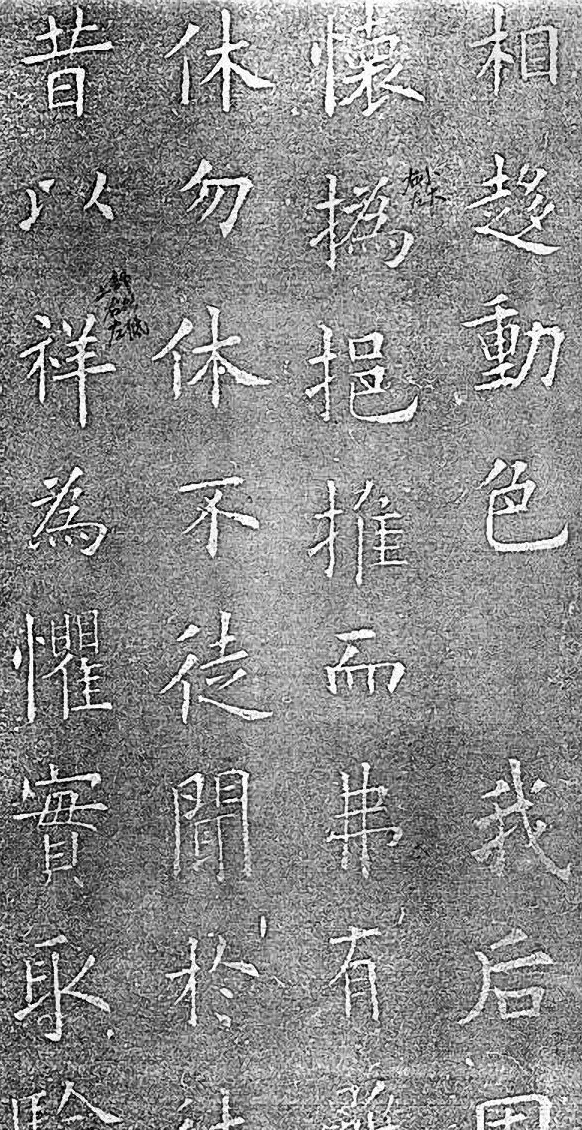 相趍動色 我后固
懷撝挹推而弗有雖
休勿休不徒聞於往
昔以祥為懼實取驗